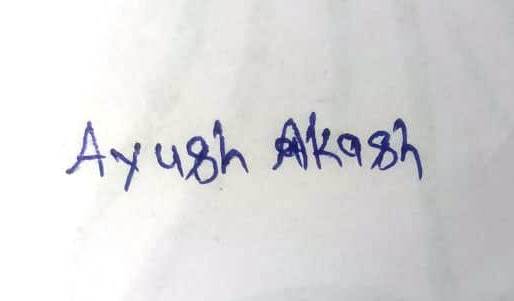 Ayush Akash